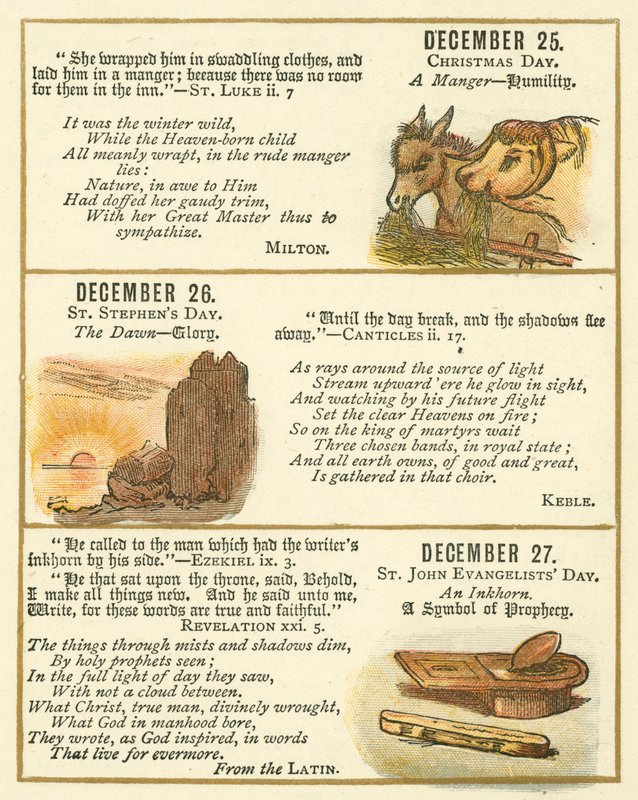 “She wrapped him in swaddling clothes, and
laid him in a manger; because there was no room
for them in the inn.”—ST. LUKE ii. 7
It was the winter wild,
While the Heaven-born child
All meanly wrapt, in the rude manger
lies:
Nature, in awe to Him
Had doffed her gaudy trim,
With her Great Master thus to
sympathize.
MILTON.
DECEMBER 25.
CHRISTMAS DAY.
A Manger—Humility.
DECEMBER 26.
ST. STEPHEN'S DAY.
The Dawn—Glory.
“Until the day break, and the shadows flee
away.”—CANTICLES ii. 17.
As rays around the source of light
Stream upward 'ere he glow in sight,
And watching by his future flight
Set the clear Heavens on fire;
So on the king of martyrs wait
Three chosen bands, in royal state;
And all earth owns, of good and great,
Is gathered in that choir.
KEBLE.
“He called to the man which had the writer's
inkhorn by his side.”—EZEKIEL ix. 3.
“He that sat upon the throne, said, Behold,
I make all things new. And he said unto me,
Write, for these words are true and faithful.”
REVELATION xxi. 5.
The things through mists and shadows dim,
By holy prophets seen;
In the full light of day they saw,
With not a cloud between.
What Christ, true man, divinely wrought,
What God in manhood bore,
They wrote, as God inspired, in words
That live for evermore.
From the LATIN.
DECEMBER 27.
ST. JOHN EVANGELISTS' DAY.
An Inkhorn.
A Symbol of Prophecy.